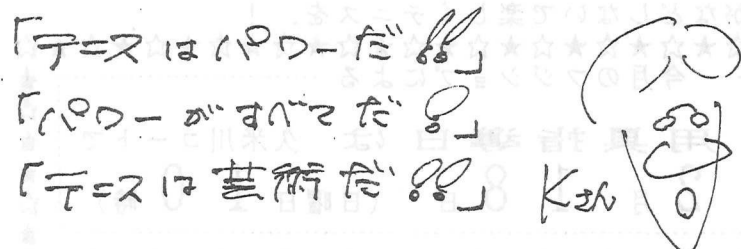 「テニスはパワーだ!!」
「パワーがすべてだ!」
「テニスは芸術だ!!」
Kさん